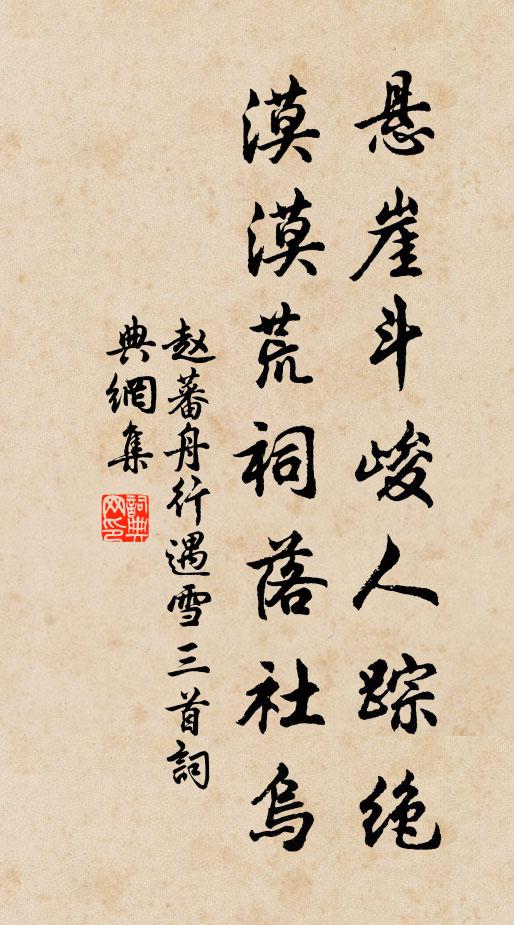 悬崖斗峻人踪绝
漠漠荒祠落社烏
赵蕃舟行遇雪三首詞
典網集
詞典网印